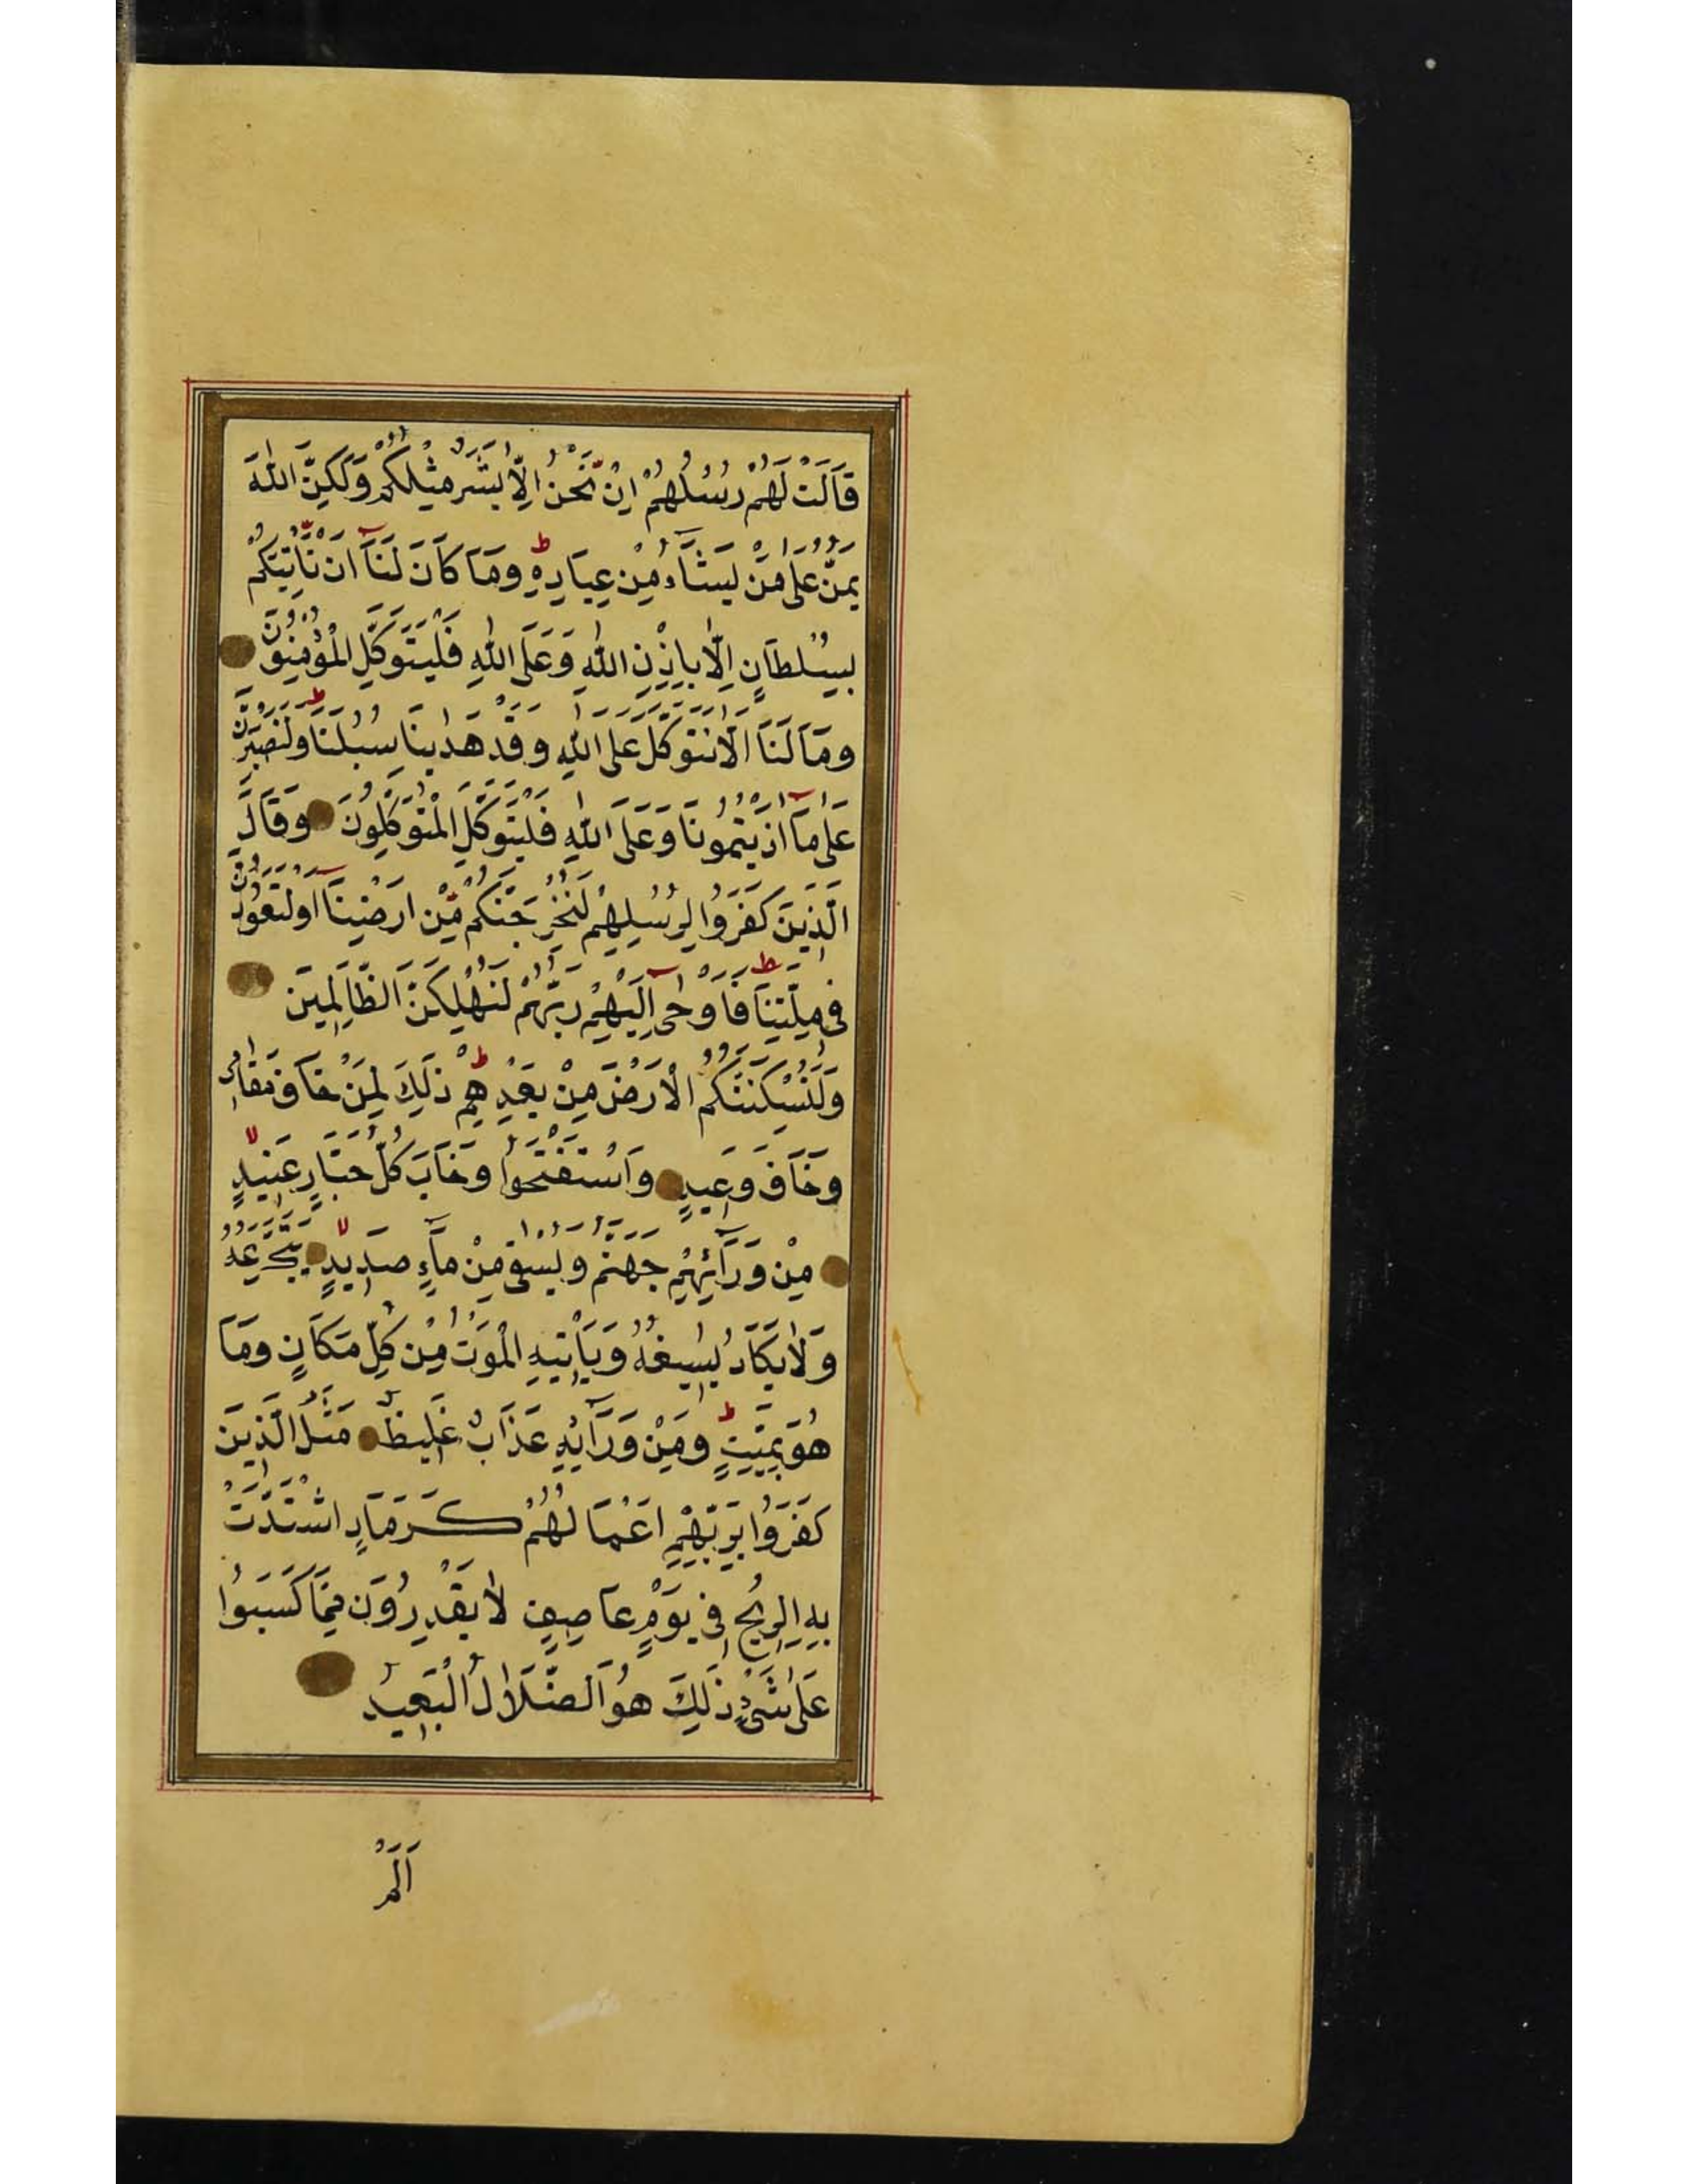 قَالَتْ لَهُمْ رُسُلُهُمْ اِنْ نَحْنُ اِلَّا بَشَرٌ مِثْلُكُمْ وَلٰكِنَّ اللّٰهَ
يَمُنُّ عَلٰى مَنْ يَشَٓاءُ مِنْ عِبَادِهِ ط وَمَا كَانَ لَنَٓا اَنْ نَّاْتِيَكُمْ
بِسُلْطَانٍ اِلَّا بِاِذْنِ اللّٰهِ وَعَلَى اللّٰهِ فَلْيَتَوَكَّلِ الْمُؤْمِنُونَ
وَمَا لَنَٓا اَلَّا نَتَوَكَّلَ عَلَى اللّٰهِ وَقَدْ هَدٰينَا سُبُلَنَا ط وَلَنَصْبِرَنَّ
عَلٰى مَٓا اٰذَيْتُمُونَا وَعَلَى اللّٰهِ فَلْيَتَوَكَّلِ الْمُتَوَكِّلُونَ وَقَالَ
الَّذِينَ كَفَرُوا لِرُسُلِهِمْ لَنُخْرِجَنَّكُمْ مِّنْ اَرْضِنَٓا اَوْ لَتَعُودُنَّ
فِى مِلَّتِنَا ط فَاَوْحٰٓى اِلَيْهِمْ رَبُّهُمْ لَنُهْلِكَنَّ الظَّالِمِينَ
وَلَنُسْكِنَنَّكُمُ الْاَرْضَ مِنْ بَعْدِهِمْ ط ذٰلِكَ لِمَنْ خَافَ مَقَامِى
وَخَافَ وَعِيدِ وَاسْتَفْتَحُوا وَخَابَ كُلُّ جَبَّارٍ عَنِيدٍ لا
مِنْ وَرَٓائِهِمْ جَهَنَّمُ وَيُسْقٰى مِنْ مَٓاءٍ صَدِيدٍ لا يَتَجَرَّعُهُ
وَلَا يَكَادُ يُسِيغُهُ وَيَاْتِيهِ الْمَوْتُ مِنْ كُلِّ مَكَانٍ وَمَا
هُوَ بِمَيِّتٍ ط وَمِنْ وَرَٓائِهِ عَذَابٌ غَلِيظٌ مَثَلُ الَّذِينَ
كَفَرُوا بِرَبِّهِمْ اَعْمَالُهُمْ كَرَمَادٍ اشْتَدَّتْ
بِهِ الرِّيحُ فِى يَوْمٍ عَاصِفٍ لَا يَقْدِرُونَ مِمَّا كَسَبُوا
عَلٰى شَىْءٍ ذٰلِكَ هُوَ الضَّلَالُ الْبَعِيدُ
اَلَمْ